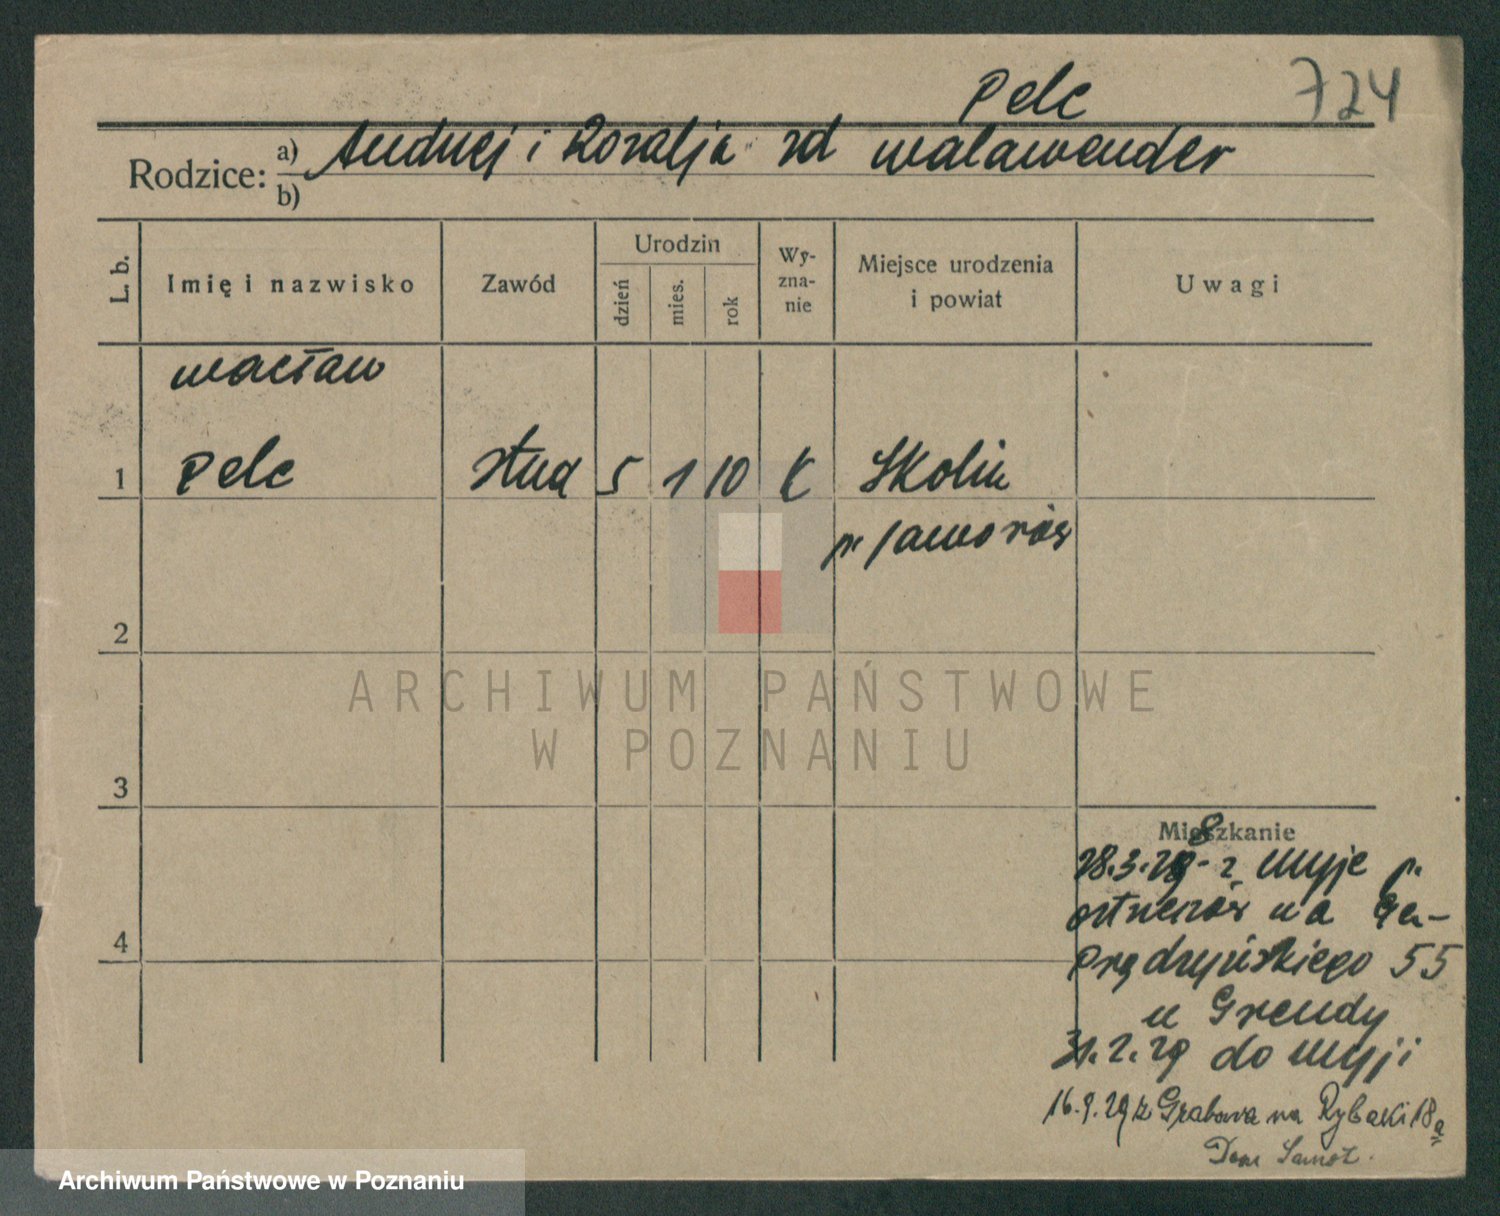 Pelc 724
Rodzice: a) Andrzej i Rozalja zd Walawender
b)
L. b. Imię i nazwisko Zawód Urodzin dzień mies. rok Wyznanie Miejsce urodzenia i powiat Uwagi
Wacław
1 Pelc stud 5 1 10 K Skolin
p. Jaworów
2
ARCHIWUM PAŃSTWOWE
W POZNANIU
3
Mieszkanie
8
28.3.28 - z Wyje p.
ostrzeszów na Gen-
Prądzyńskiego 55
u Grendy
31.7.29 do Wyji
16.9.29 z Grabowa na Rybaki 18a
Dom
4
Archiwum Państwowe w Poznaniu